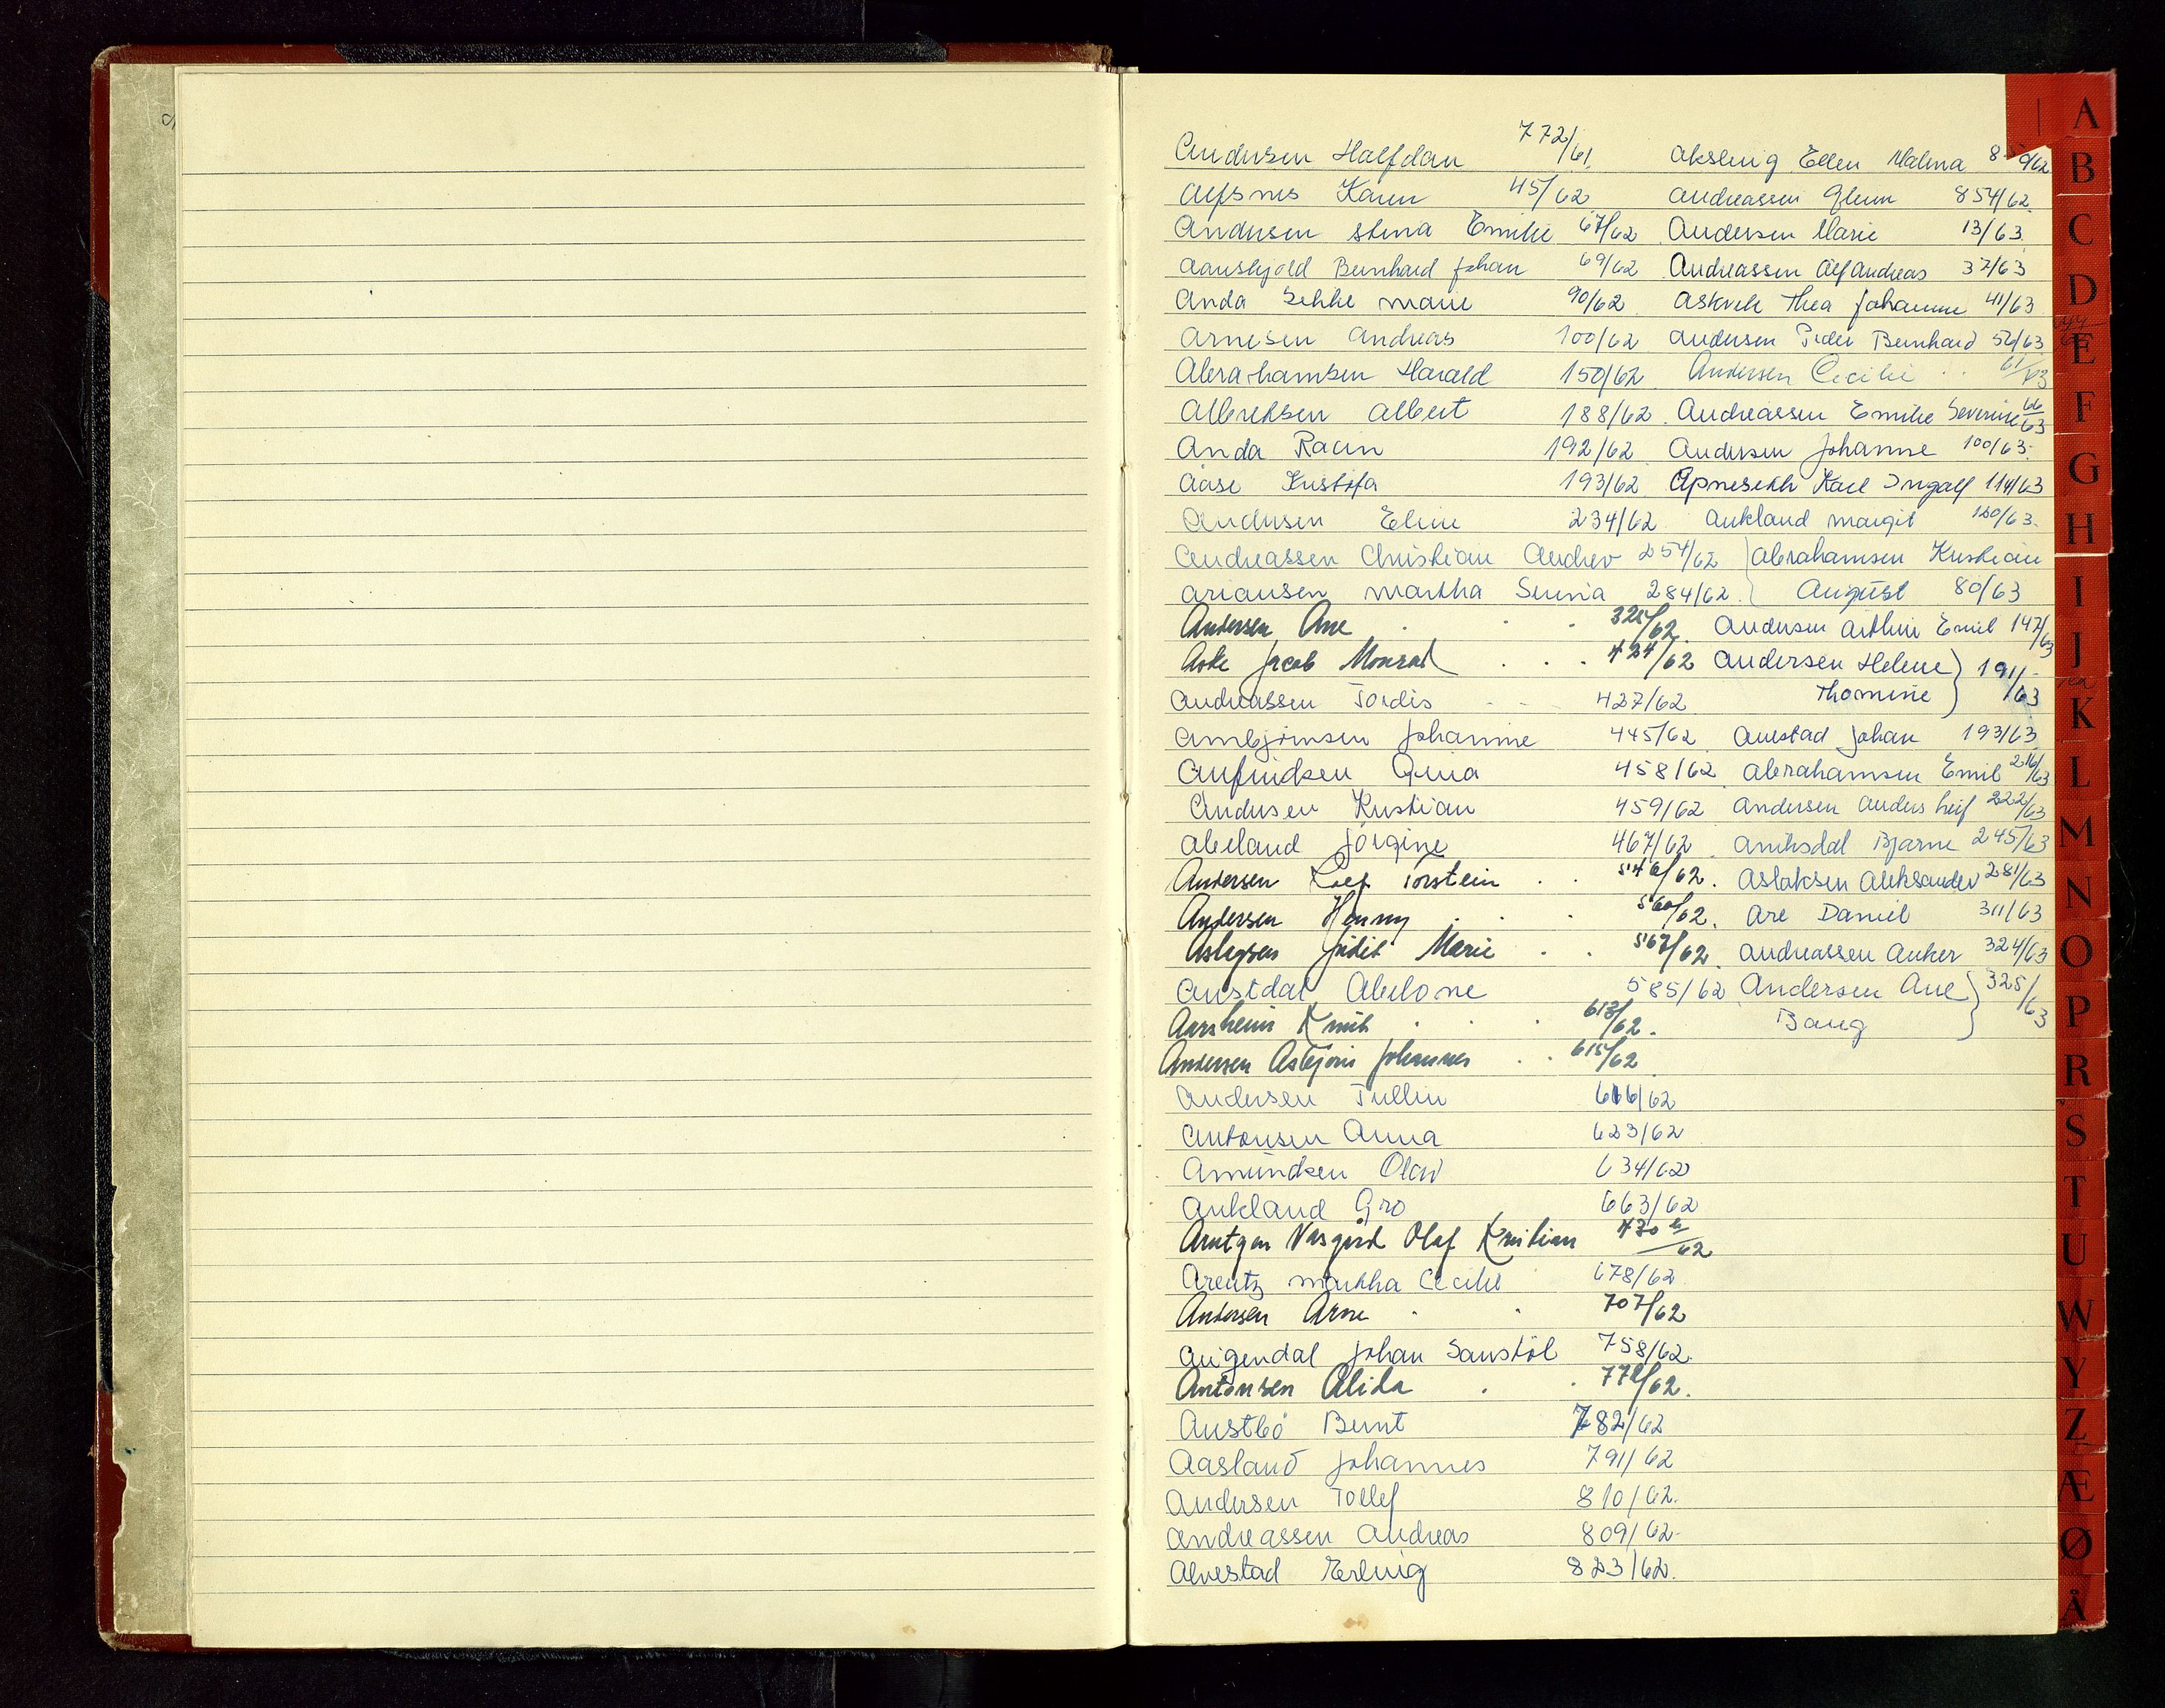 Andersen Halfdan 772/61
Alfsnes Karen 45/62
Andersen Stina Emilie 67/62
Aanskjold Bernhard Johan 69/62
Anda Sekke Marie 90/62
Arnesen Andreas 100/62
Abrahamsen Harald 150/62
Albrektsen Albert 188/62
Anda Racin 192/62
Aase Kristofa 193/62
Andersen Eline 234/62
Andreassen Christian Andrev 254/62
Ariansen Martha Serina 284/62
Andersen Ane 325/62
Aske Jacob Monrad 424/62
Andreassen Tordis 427/62
Ambjørnsen Johanne 445/62
Anfindsen Gina 458/62
Andersen Kristian 459/62
Abeland Jørgine 467/62
Andersen Leif Torstein 546/62
Andersen Henny 560/62
Aslagsen Judit Marie 567/62
Austdal Abelone 585/62
Aarsheim Knut 613/62
Andersen Asbjørn Johannes 615/62
Andersen Tullin 616/62
Antonsen Anna 623/62
Amundsen Olav 634/62
Aukland Gro 663/62
Arntzen Vasgård Olaf Kristian 470b/62
Arentz Martha Cecilie 678/62
Andersen Arne 707/62
Augendal Johan Saustøl 758/62
Antonsen Alida 772/62
Austbø Bernt 782/62
Aasland Johannes 791/62
Andersen Tollef 810/62
Andreassen Andreas 809/62
Alvestad Erling 823/62
Aksling Ellen Malena
Andreassen Glenn 854/62
Andersen Marie 13/63
Andreassen Alf Andreas 37/63
Askvik Thea Johanne 41/63
Andersen Peder Bernhard 56/63
Andersen Cecilie 61/63
Andreassen Emilie Severine 66/63
Andersen Johanne 100/63
Apneseth Karl Ingolf 114/63
Aukland Margit 120/63
Abrahamsen Kristian
August 80/63
Andersen Arthur Emil 147/63
Andersen Helene
Thomine 191/63
Auestad Johan 193/63
Abrahamsen Emil 216/63
Andersen Anders Leif 222/63
Amthsdal Bjarne 245/63
Aslaksen Aleksander 281/63
Are Daniel 311/63
Andreassen Anker 324/63
Andersen Ane
Baug 325/63
A
B
C
D
E
F
G
H
I
J
K
L
M
N
O
P
R
S
T
U
W
Y
Z
Æ
Ø
Å